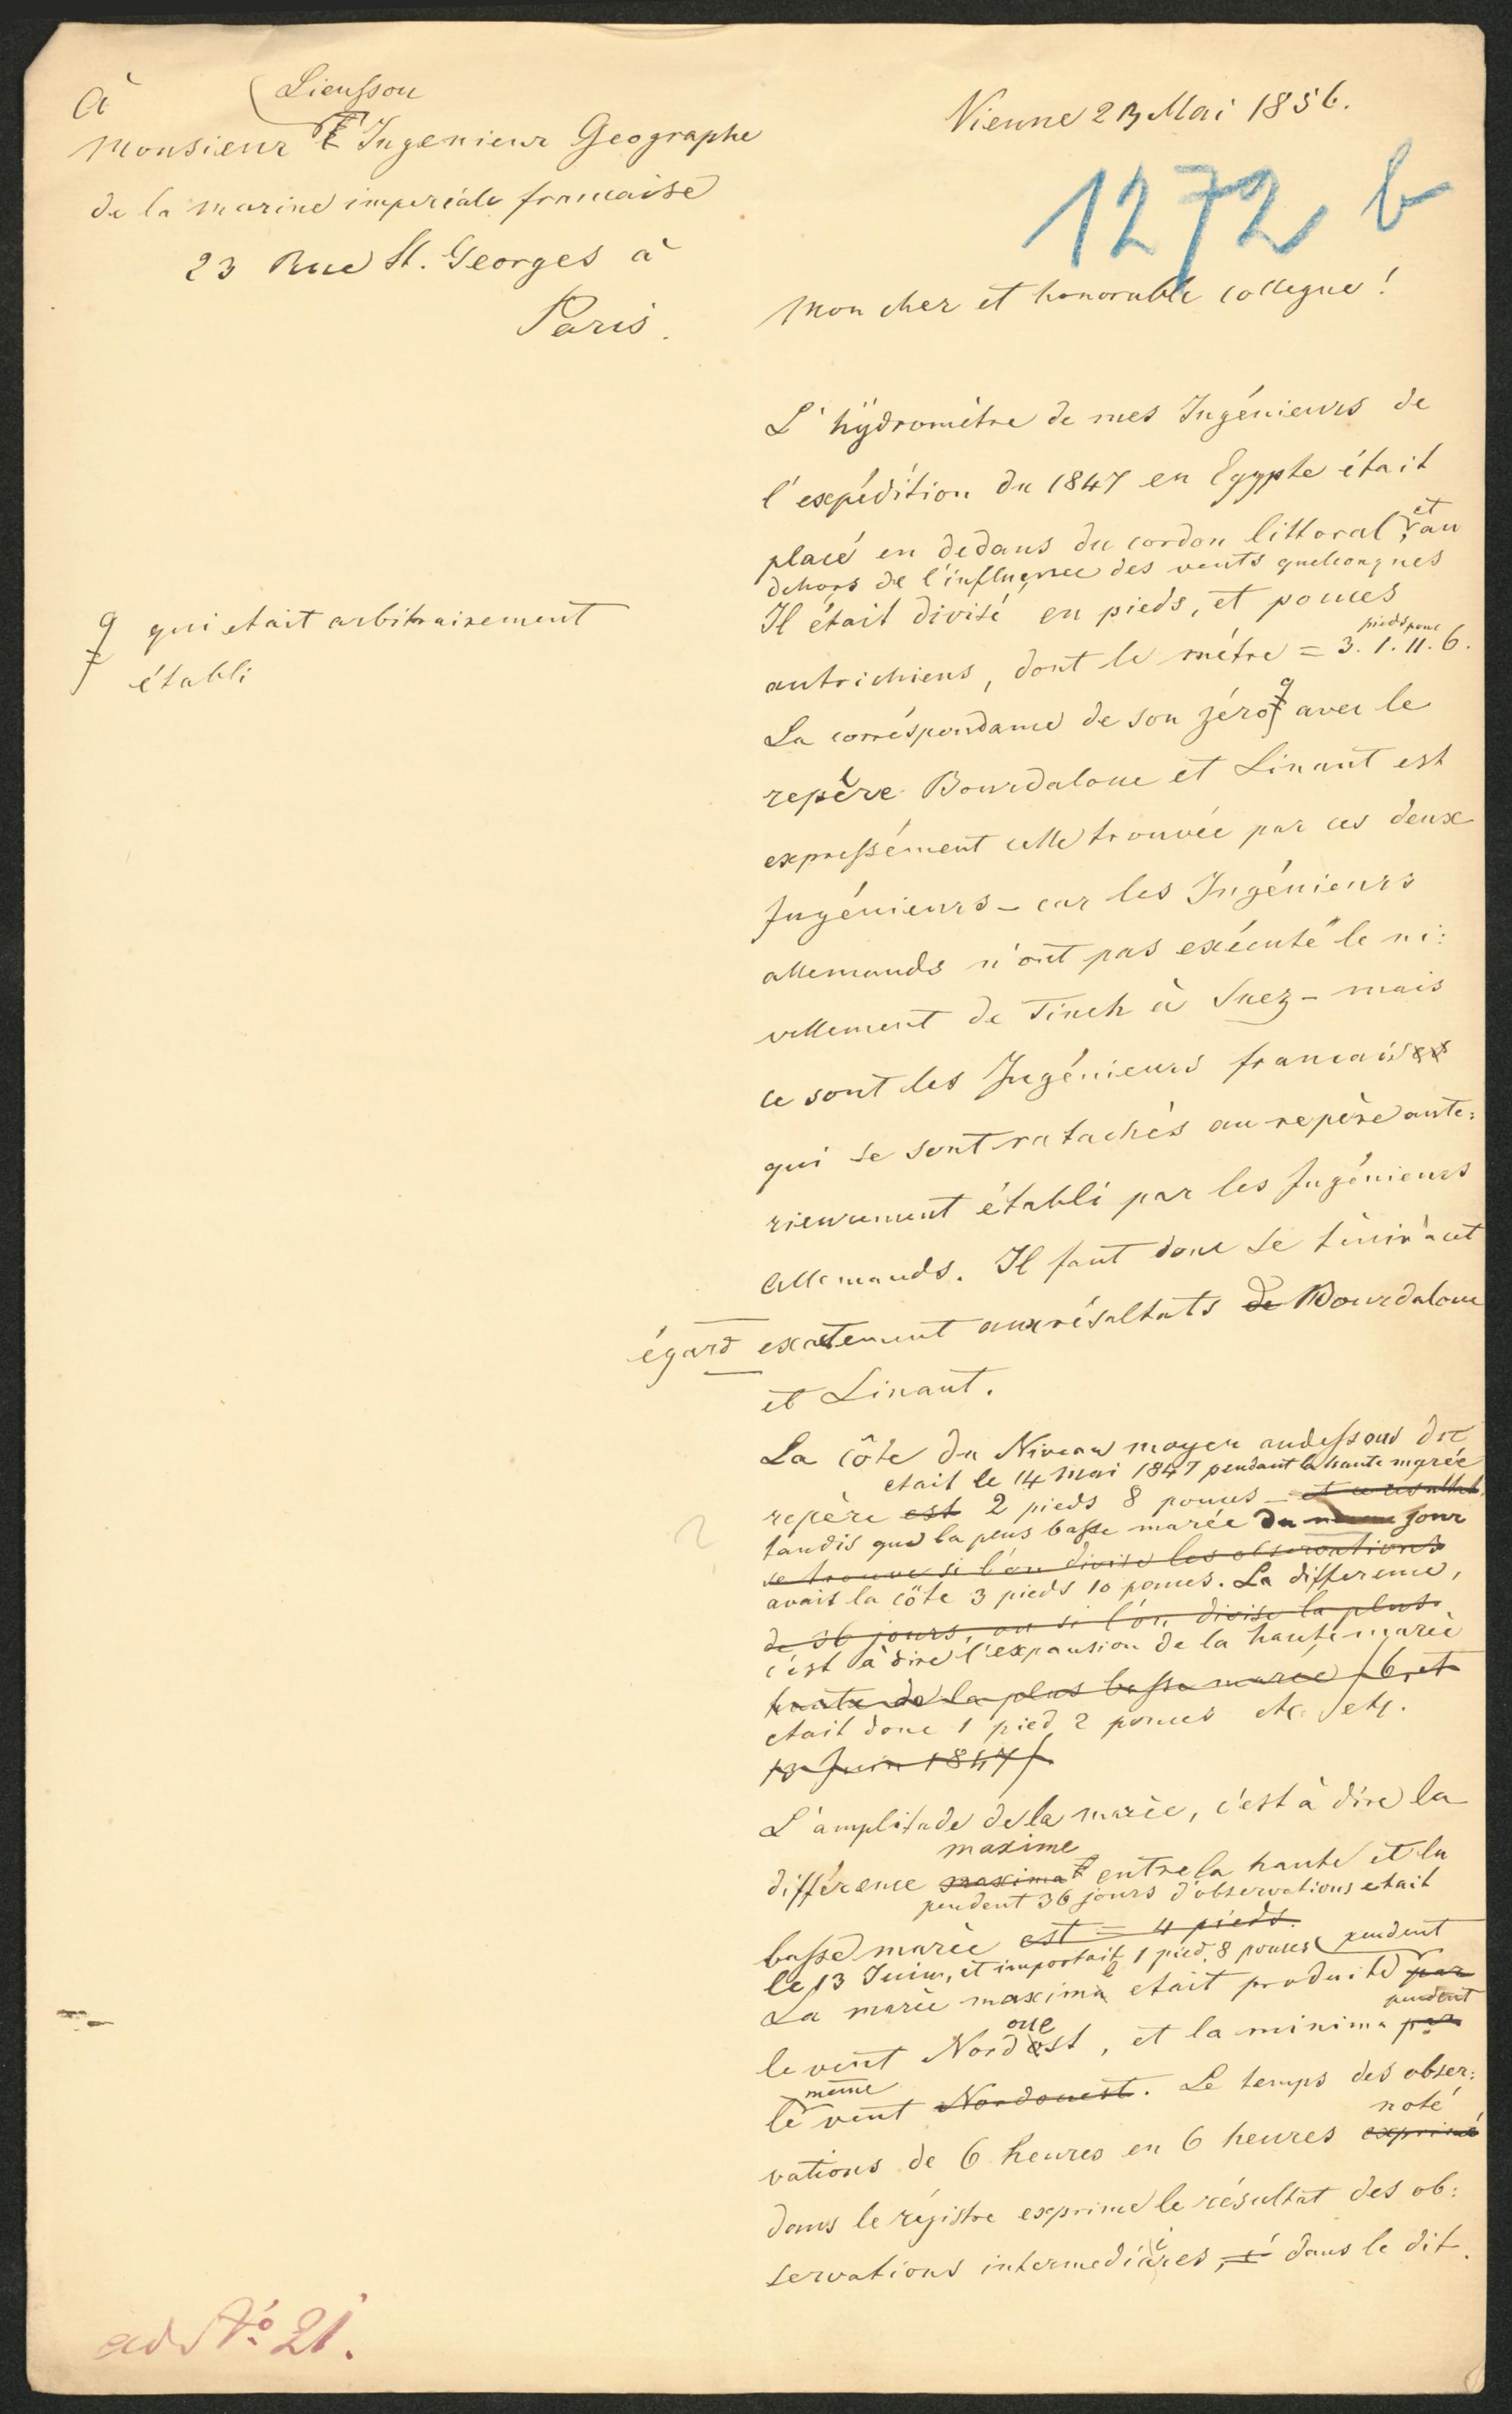 à
Lieussou
Monsieur Ingenieur Geographe
de la marine imperiale francaise
23 Rue St. Georges à
Paris.
Vienne 23 Mai 1856.
1272 b
Mon cher et honorable collegue!
L'hÿdromètre de mes Ingénieurs de
l'expédition du 1847 en Egypte était
placé en dedans du cordon littoral, et au
dehors de l'influence des vents quelconques
Il était divisé en pieds, et pouces
pieds pouc
autrichiens, dont le métre = 3. 1. 11. 6.
La corréspondance de son zéro avec le
qui etait arbitrairement
établi
repère Bourdaloue et Linant est
expressément celle trouvée par ces deux
Ingénieurs – car les Ingénieurs
allemands n'ont pas exécuté le ni:
vellement de Tineh à Suez – mais
ce sont les Ingénieurs francais
qui se sont ratachés au repère ante:
rieurement établi par les Ingénieurs
Allemands. Il faut donc se ténir à cet
égard exactement aux résultats de Bourdaloue
et Linant.
La côte du Niveau moyen audessous du
etait le 14 Mai 1847 pendant la haute marée
repère est 2 pieds 8 pouces – et ce resultat
tandis que la plus basse marée du même jour
se trouve si l'on divise les observations
avait la côte 3 pieds 10 pouces. La difference,
de 36 jours, ou si l'on divise la plus
c'est à dire l'expansion de la haute marée
haute de la plus basse marée / 6, et
etait donc 1 pied 2 pouces etc. etc.
13 Juin 1847 /.
L'amplitude de la marée, c'est à dire la
maxime
différence maxima entre la haute et la
pendent 36 jours d'observations etait
basse marée est = 4 pieds.
le 13 Juin, et importait 1 pied, 8 pouces pendent
La marée maxima etait produite par
oue pendent
le vent Nordost, et la minima par
même
le vent Nordouest. Le temps des obser:
noté
vations de 6 heures en 6 heures exprimé
dans le régistre exprime le résultat des ob:
servations intermediaires, dans le dit
ad No. 21.